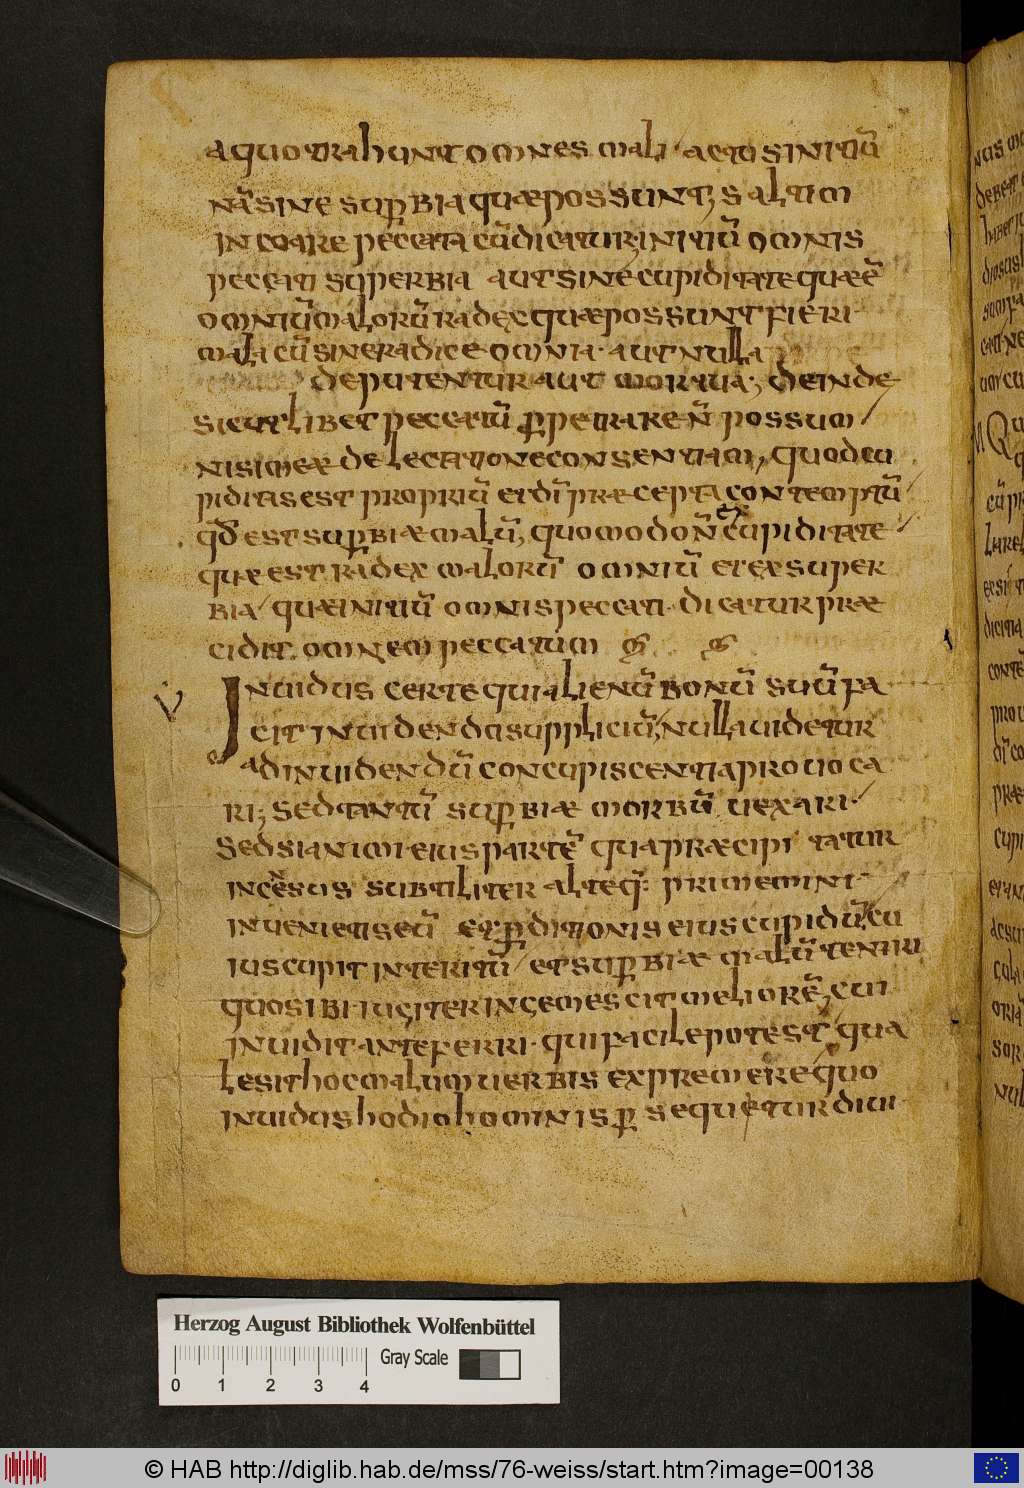 aquo trahunt omnes mali actus initiū
nā sine superbia quae possunt, saltim
incoare peccata cū dicatur, initiū omnis
peccati superbia aut sine cupiditate quae ē
omniū malorū radex quae possunt fieri
mala cū sine radice omnia aut nulla
deputentur aut mortua; deinde
sicut libet peccatū ꝑpetrare ñ possum
nisi meae delectatione consentiam, quod cu
piditas est propriū et dī praecepta contemptū
qđ est suꝑbiae malū, quomodo ñ ex cupiditate
quae est radex malorū omniū et ex super
bia quae initiū omnis peccati dicatur prae
cidit omnem peccatum
V
Inuidus certe qui alienū bonū suū fa
cit inuidendo suppliciū, nulla uidetur
ad inuidendū concupiscentia prouoca
ri; sed tantū suꝑbiae morbū uexari
Sed si animi eius partē qua praecipitatur
incēsus subtiliter
inueniet se cū et ꝑditionis eius cupidū, cu
ius cupit interitū et suꝑbiae malū teneri
quo sibi iugiter ingemescit meliorē, cui
inuidit anteferri qui facile potest qua
le sit hoc malum uerbis expremere quo
inuidus hodio hominis ꝑsequetur diui
Herzog August Bibliothek Wolfenbüttel
Gray Scale
0 1 2 3 4
© HAB http://diglib.hab.de/mss/76-weiss/start.htm?image=00138